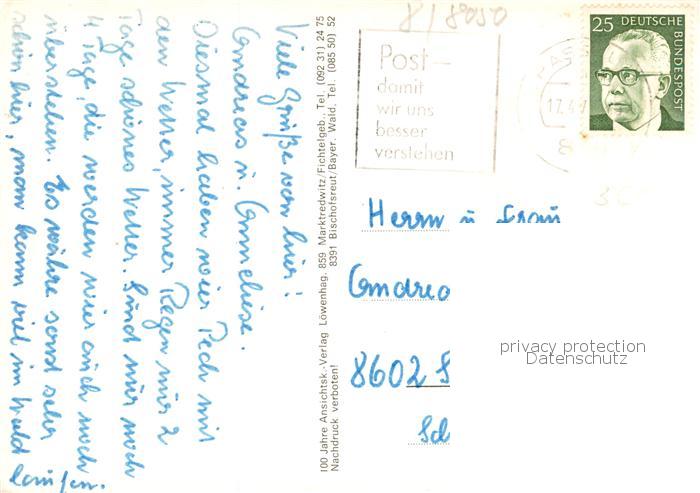 Viele Grüße von hier!
Andreas u. Anneliese.
Diesmal haben wir Pech mit
den Wetter, immer Regen nur 2
Tage schönes Wetter. Sind nur noch
4 Tage, die werden wir auch noch
überstehen. Es währe sonst sehr
schön hier, man kann viel im Wald
laufen.
100 Jahre Ansichtsk.-Verlag Löwenhag, 859 Marktredwitz/Fichtelgeb., Tel. (092 31) 24 75
8391 Bischofsreut/Bayer. Wald, Tel. (085 50) 52
Nachdruck verboten!
8/8050
Post-
damit
wir uns
besser
verstehen
17.4.7
25 DEUTSCHE
BUNDESPOST
Herrn u Frau
Andrea
8602 S
Sch
privacy protection
Datenschutz